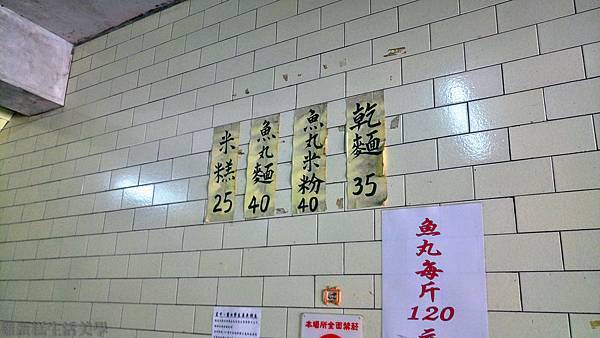 乾麵 35
魚丸米粉 40
魚丸麵 40
米糕 25
魚丸每斤120元
本場所全面禁菸